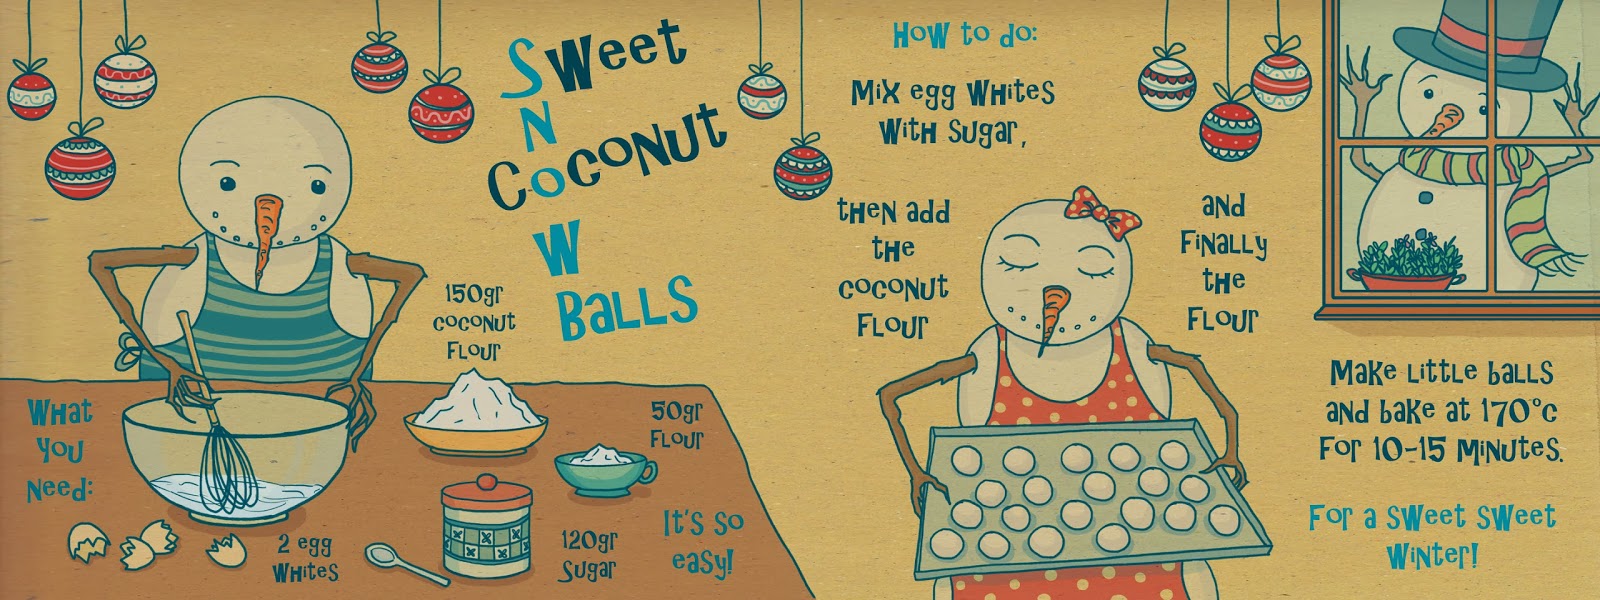 SWeet
SNOW
COCONUT
BALLS
What
you
Need:
150gr
coconut
Flour
50gr
Flour
2 egg
Whites
120gr
Sugar
It's so
easy!
How to do:
Mix egg Whites
With sugar,
then add
the
coconut
Flour
and
Finally
the
Flour
Make little balls
and bake at 170°c
For 10-15 Minutes.
For a sweet sweet
Winter!